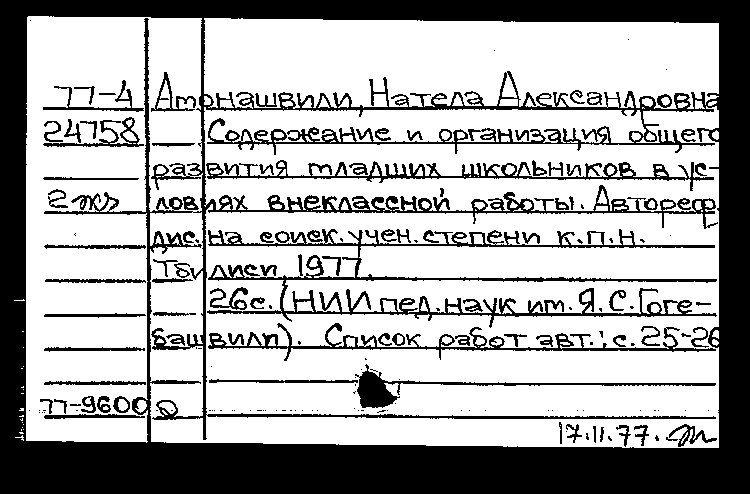 77-4 Атонашвили, Натела Александровна
24758 Содержание и организация общего
развития младших школьников в ус-
2 экз ловиях внеклассной работы. Автореф.
дис. на соиск. учен. степени к.п.н.
Тбилиси, 1977.
26с. (НИИ пед. наук им. Я.С. Гоге-
башвили). Список работ авт.: с. 25-26
77-9600
17.11.77.